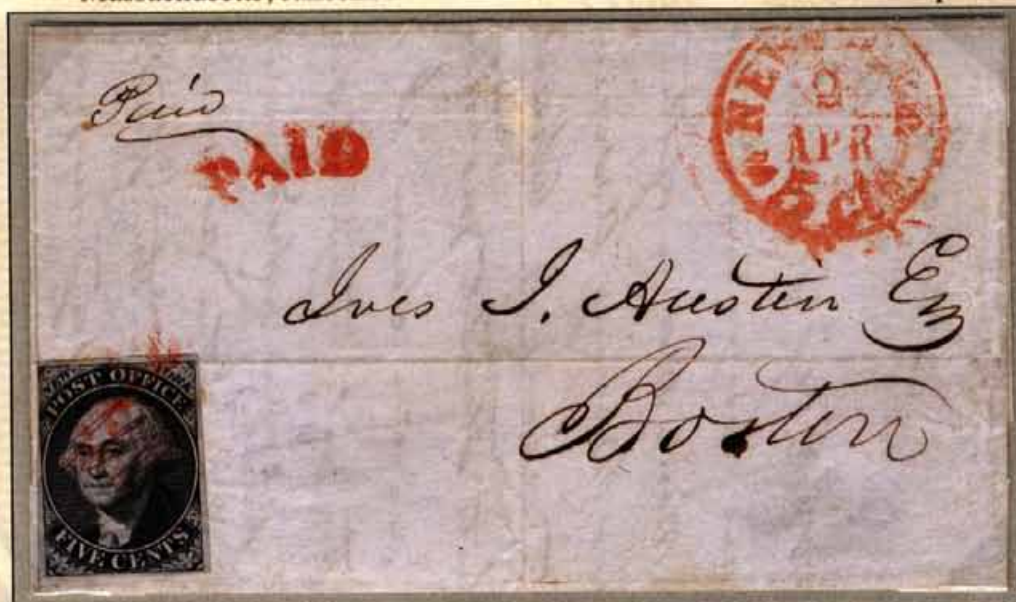 Paid
PAID
NEW
2
APR
5 cts.
Ives J. Austin Esq
Boston
POST OFFICE
FIVE CENTS